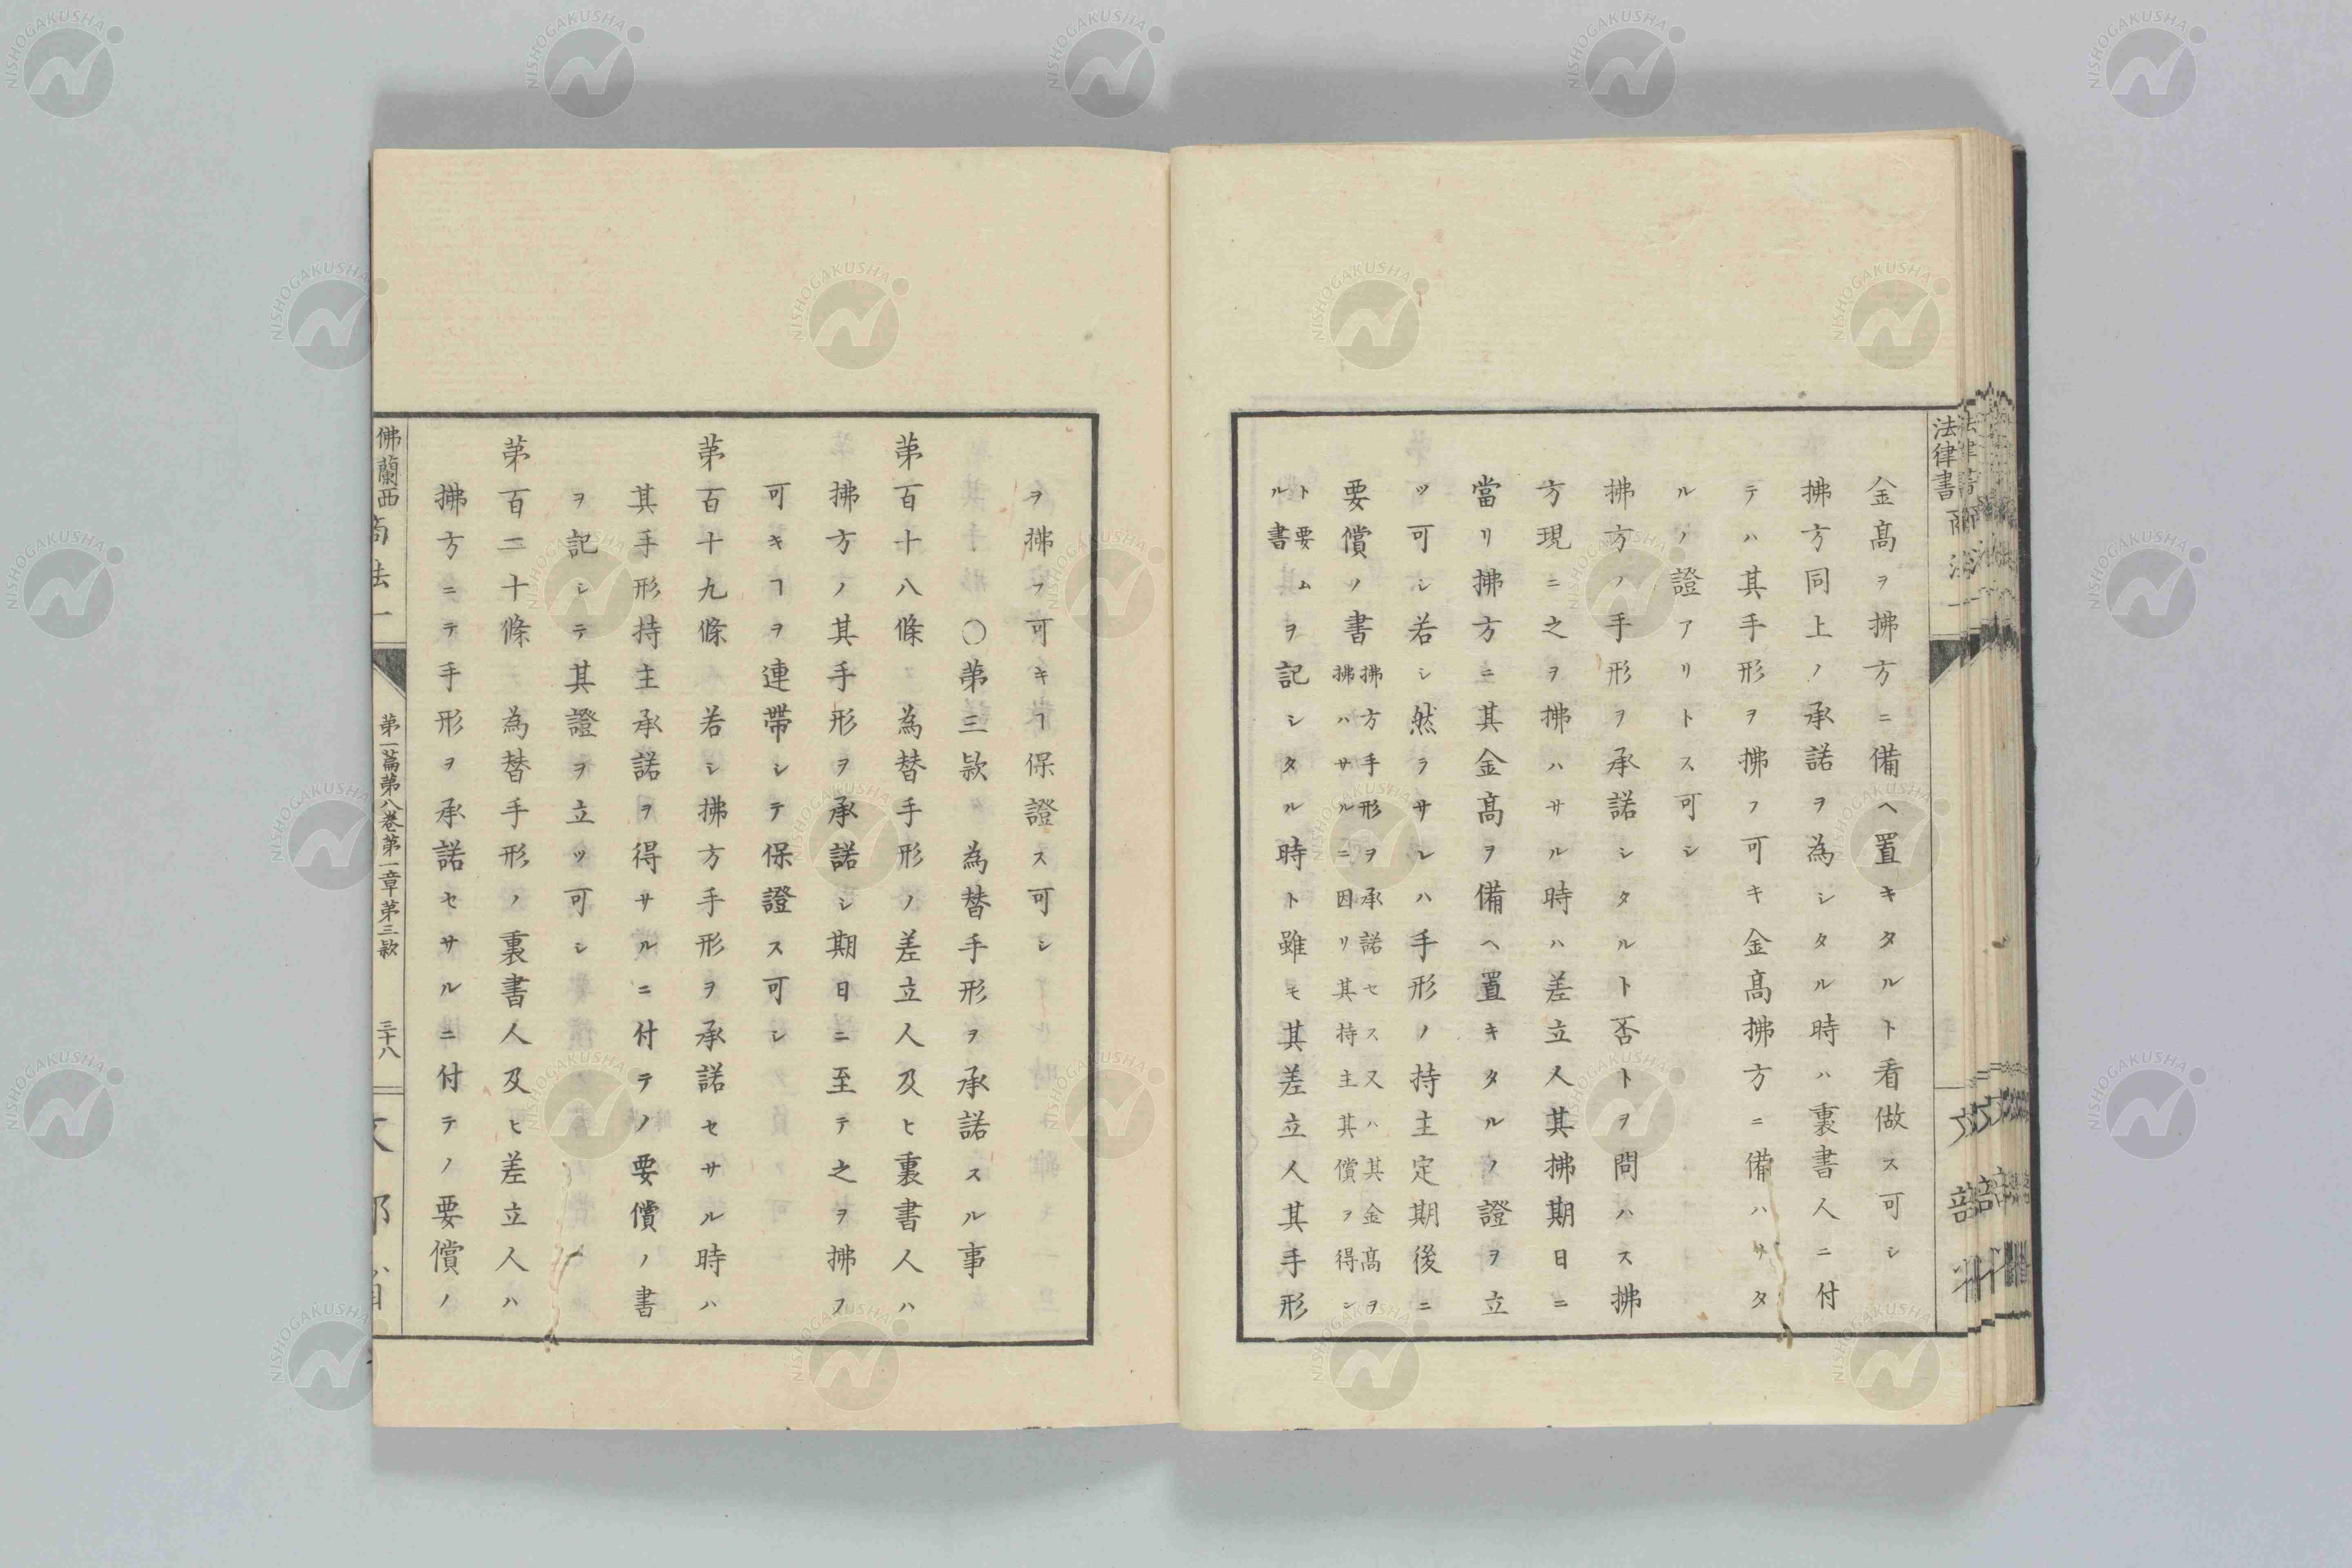 金髙ヲ拂方ニ備ヘ置キタルト看做ス可シ
拂方同上ノ承諾ヲ為シタル時ハ裏書人ニ付
テハ其手形ヲ拂フ可キ金髙拂方ニ備ハリタ
ルノ證アリトス可シ
拂方ノ手形ヲ承諾シタルト否トヲ問ハス拂
方現ニ之ヲ拂ハサル時ハ差立人其拂期日ニ
當リ拂方ニ其金髙ヲ備ヘ置キタルノ證ヲ立
ツ可シ若シ然ラサレハ手形ノ持主定期後ニ
要償ノ書
拂方手形ヲ承諾セス又ハ其金髙ヲ
拂ハサルニ因リ其持主其償ヲ得ン
ト要ム
ル書
ヲ記シタル時ト雖モ其差立人其手形
ヲ拂フ可キヿ保證ス可シ
〇第三款 為替手形ヲ承諾スル事
第百十八條 為替手形ノ差立人及ヒ裏書人ハ
拂方ノ其手形ヲ承諾シ期日ニ至テ之ヲ拂フ
可キヿヲ連帶シテ保證ス可シ
第百十九條 若シ拂方手形ヲ承諾セサル時ハ
其手形持主承諾ヲ得サルニ付テノ要償ノ書
ヲ記シテ其證ヲ立ツ可シ
第百二十條 為替手形ノ裏書人及ヒ差立人ハ
拂方ニテ手形ヲ承諾セサルニ付テノ要償ノ
佛蘭西商法一
第一篇第八巻第一章第三款
三十八
法律書
NISHOGAKUSHA